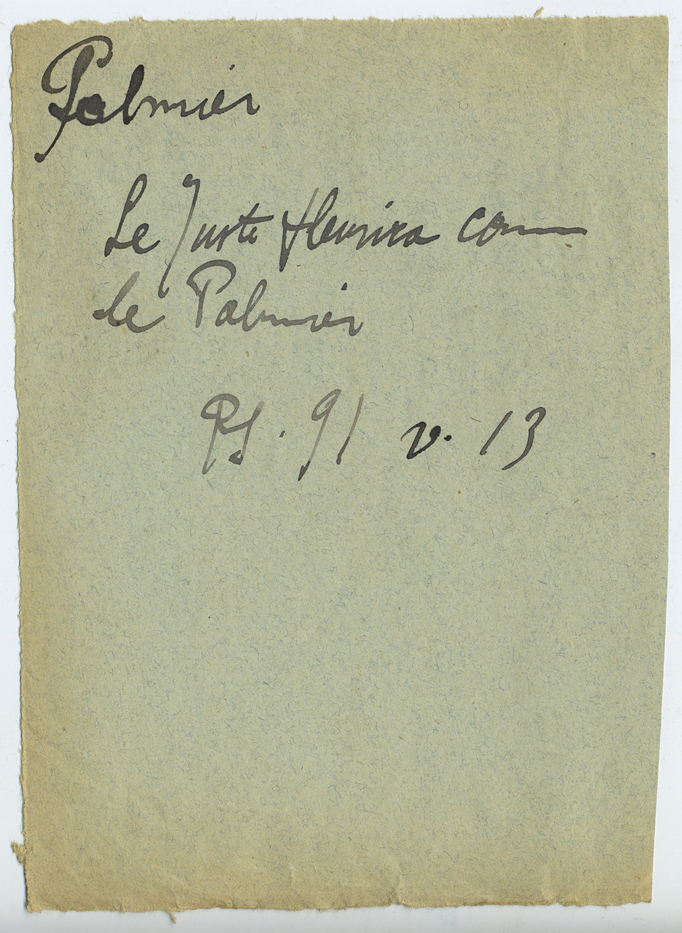 Palmier
Le Juste fleurira comme
le Palmier
Ps. 91 v. 13